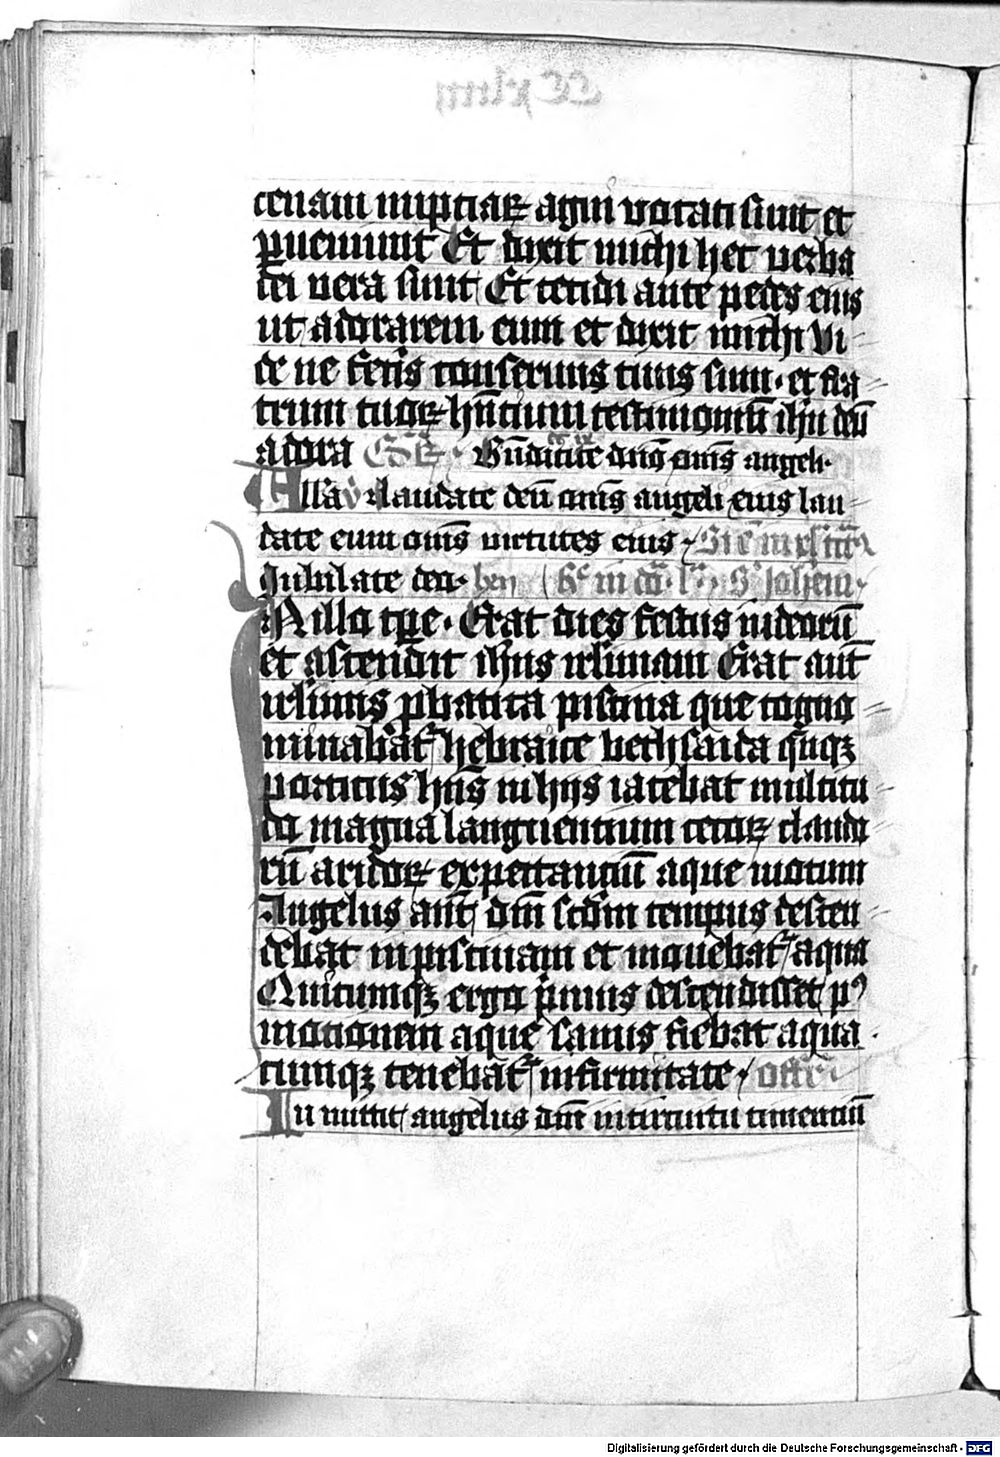 cenam nuptiaꝝ agni vocati sunt et
ꝑuenerunt Et dixit michi hec verba
dei vera sunt Et cecidi ante pedes eius
ut adorarem eum et dixit michi Vi
de ne feceris conseruus tuus sum · et fra
trum tuoꝝ hn̄cium testimoniū ihu deū
adora · Bn̄dicite dn̄o om̄s angeli ·
Alla laudate deū om̄s angeli eius lau
date eum om̄s virtutes eius
Iubilate deo · Sꝫ iohem
N illo tꝑe · Erat dies festus iudeorū
et ascendit ihus irlimam Erat aut̄
irlimis ꝓbatica piscina que cogno
minabat᷑ hebraice bethsaida qn̄qꝫ
porticus hn̄s in hijs iacebat multitu
do magna languencium cecoꝝ claudo
rū aridoꝝ expectanciū aque motum
Angelus aut̄ dn̄i scd̄m tempus descen
debat in piscinam et mouebat᷑ aqua
Quicumqꝫ ergo pͥmus descendisset pꝰ
motionem aque sanus fiebat a qua
cumqꝫ tenebat᷑ infirmitate · offr̄e
In mittit angelus dn̄i in circuitu timenciū
Digitalisierung gefördert durch die Deutsche Forschungsgemeinschaft - DFG